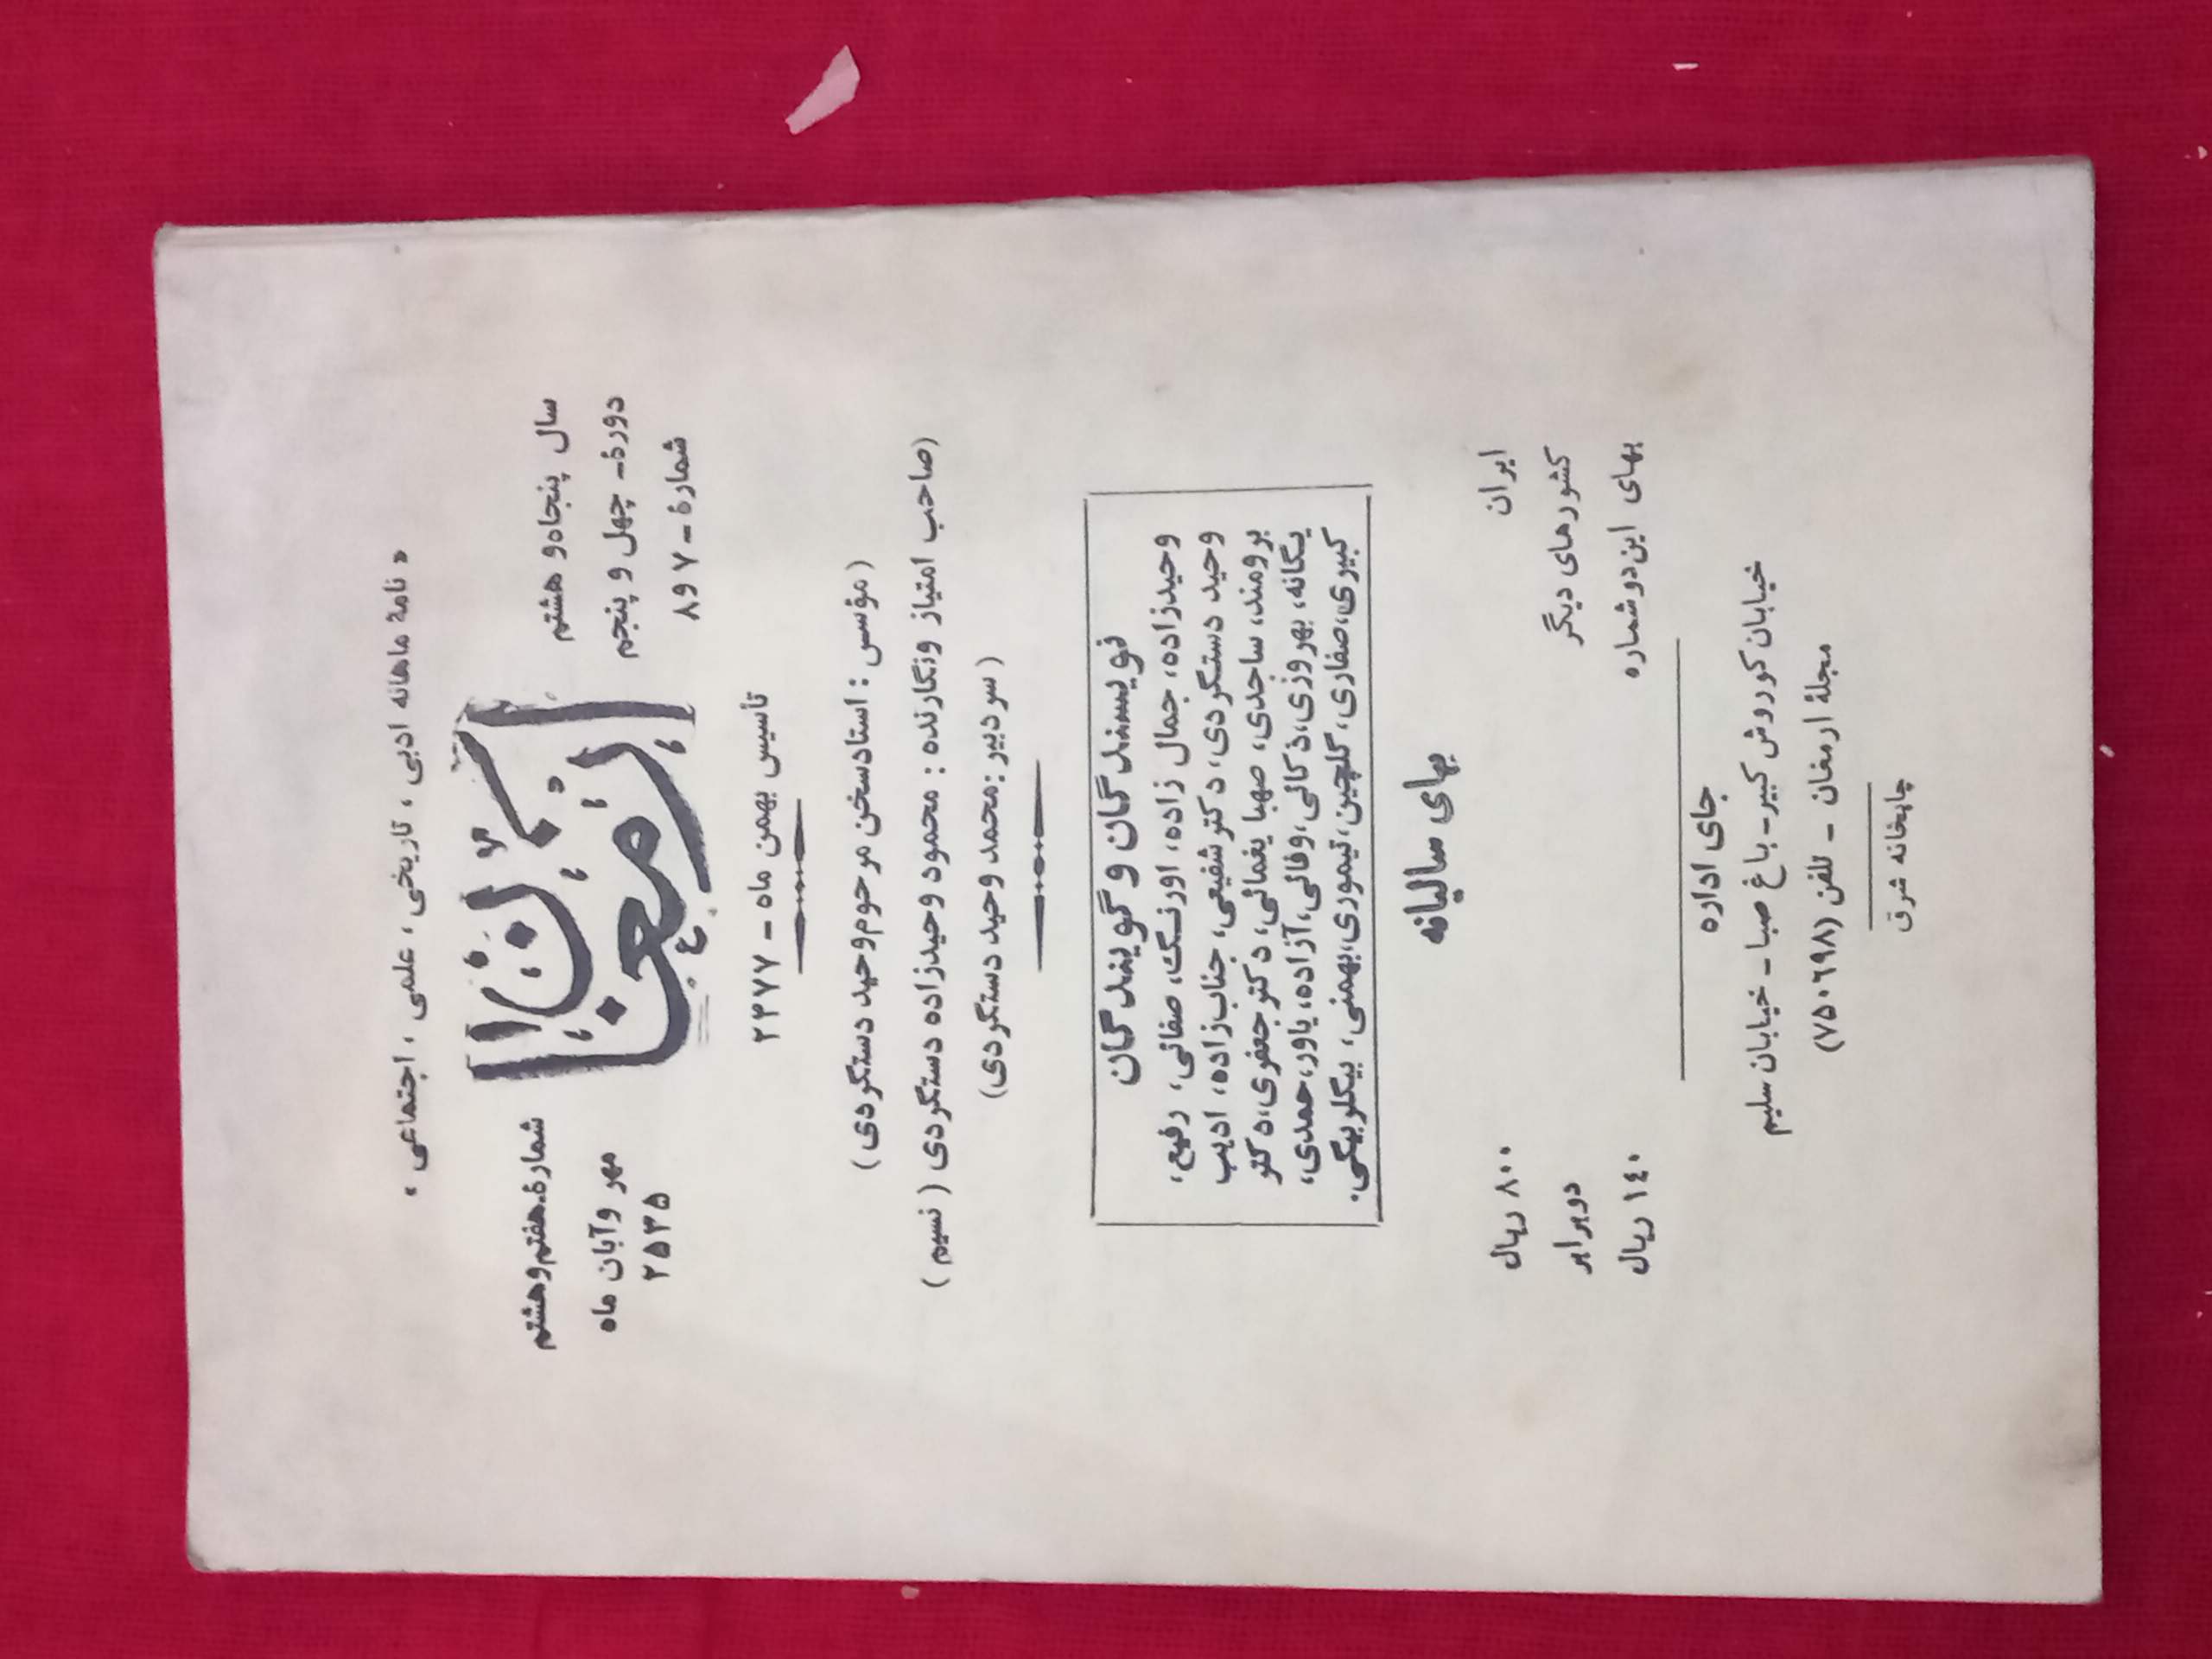 « نامهٔ ماهانه ادبی ، تاریخی ، علمی ، اجتماعی »
سال پنجاه و هشتم
دورهٔ - چهل و پنجم
شمارهٔ - ۷ و ۸
ارمغان
شمارهٔ هفتم و هشتم
مهر و آبان ماه
۲۵۳۵
تأسیس بهمن ماه - ۲۴۷۷
( مؤسس : استاد سخن مرحوم وحید دستگردی )
(صاحب امتیاز و نگارنده : محمود وحیدزاده دستگردی ( نسیم )
( سردبیر : محمد وحید دستگردی )
نویسندگان و گویندگان
وحیدزاده، جمال زاده، اورنگ، صفائی، رفیع،
وحید دستگردی، دکتر شفیعی، جناب زاده، ادیب
برومند، ساجدی، صهبا یغمائی، دکتر جعفری، دکتر
یگانه، بهروزی، ذکائی، وفائی، آزاده، یاور، حمدی،
کبیری، صفاری، گلچین، تیموری، بهمنی، بیگلربیگی.
بهای سالیانه
ایران ۸۰۰ ریال
کشورهای دیگر دو برابر
بهای این دو شماره ۱۴۰ ریال
جای اداره
خیابان کوروش کبیر - باغ صبا - خیابان سلیم
مجلهٔ ارمغان - تلفن (۷۵۰۶۹۸)
چاپخانه شرق